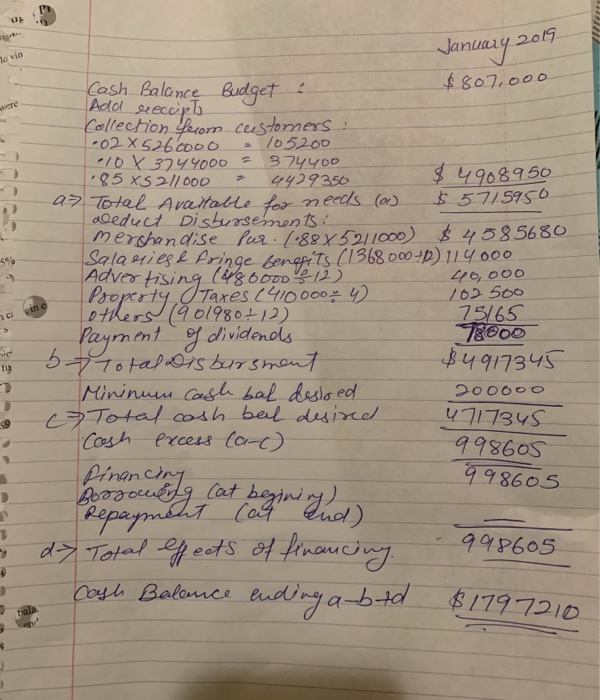 January 2019
Cash Balance Budget : $807,000
Add receipts
Collection from customers :
.02 X 5260000 = 105200
.10 X 3744000 = 374400
.85 X 5211000 = 4429350 $ 4908950
a → Total Available for needs (a) $ 5715950
Deduct Disbursements :
Merchandise Pur. (.88 X 5211000) $ 4585680
Salaries & fringe benefits (1368000÷12) 114000
Advertising (480000÷12) 40,000
Property Taxes (410000÷4) 102500
others (901980÷12) 75165
Payment of dividends 78000
b → Total Disbursment $4917345
Mininum cash bal desired 200000
c → Total cash bal desired 4717345
Cash excess (a-c) 998605
Financing 998605
Borrowing (at begining)
Repayment (at end)
d → Total effects of financing. 998605
Cash Balance ending a-b+d $1797210